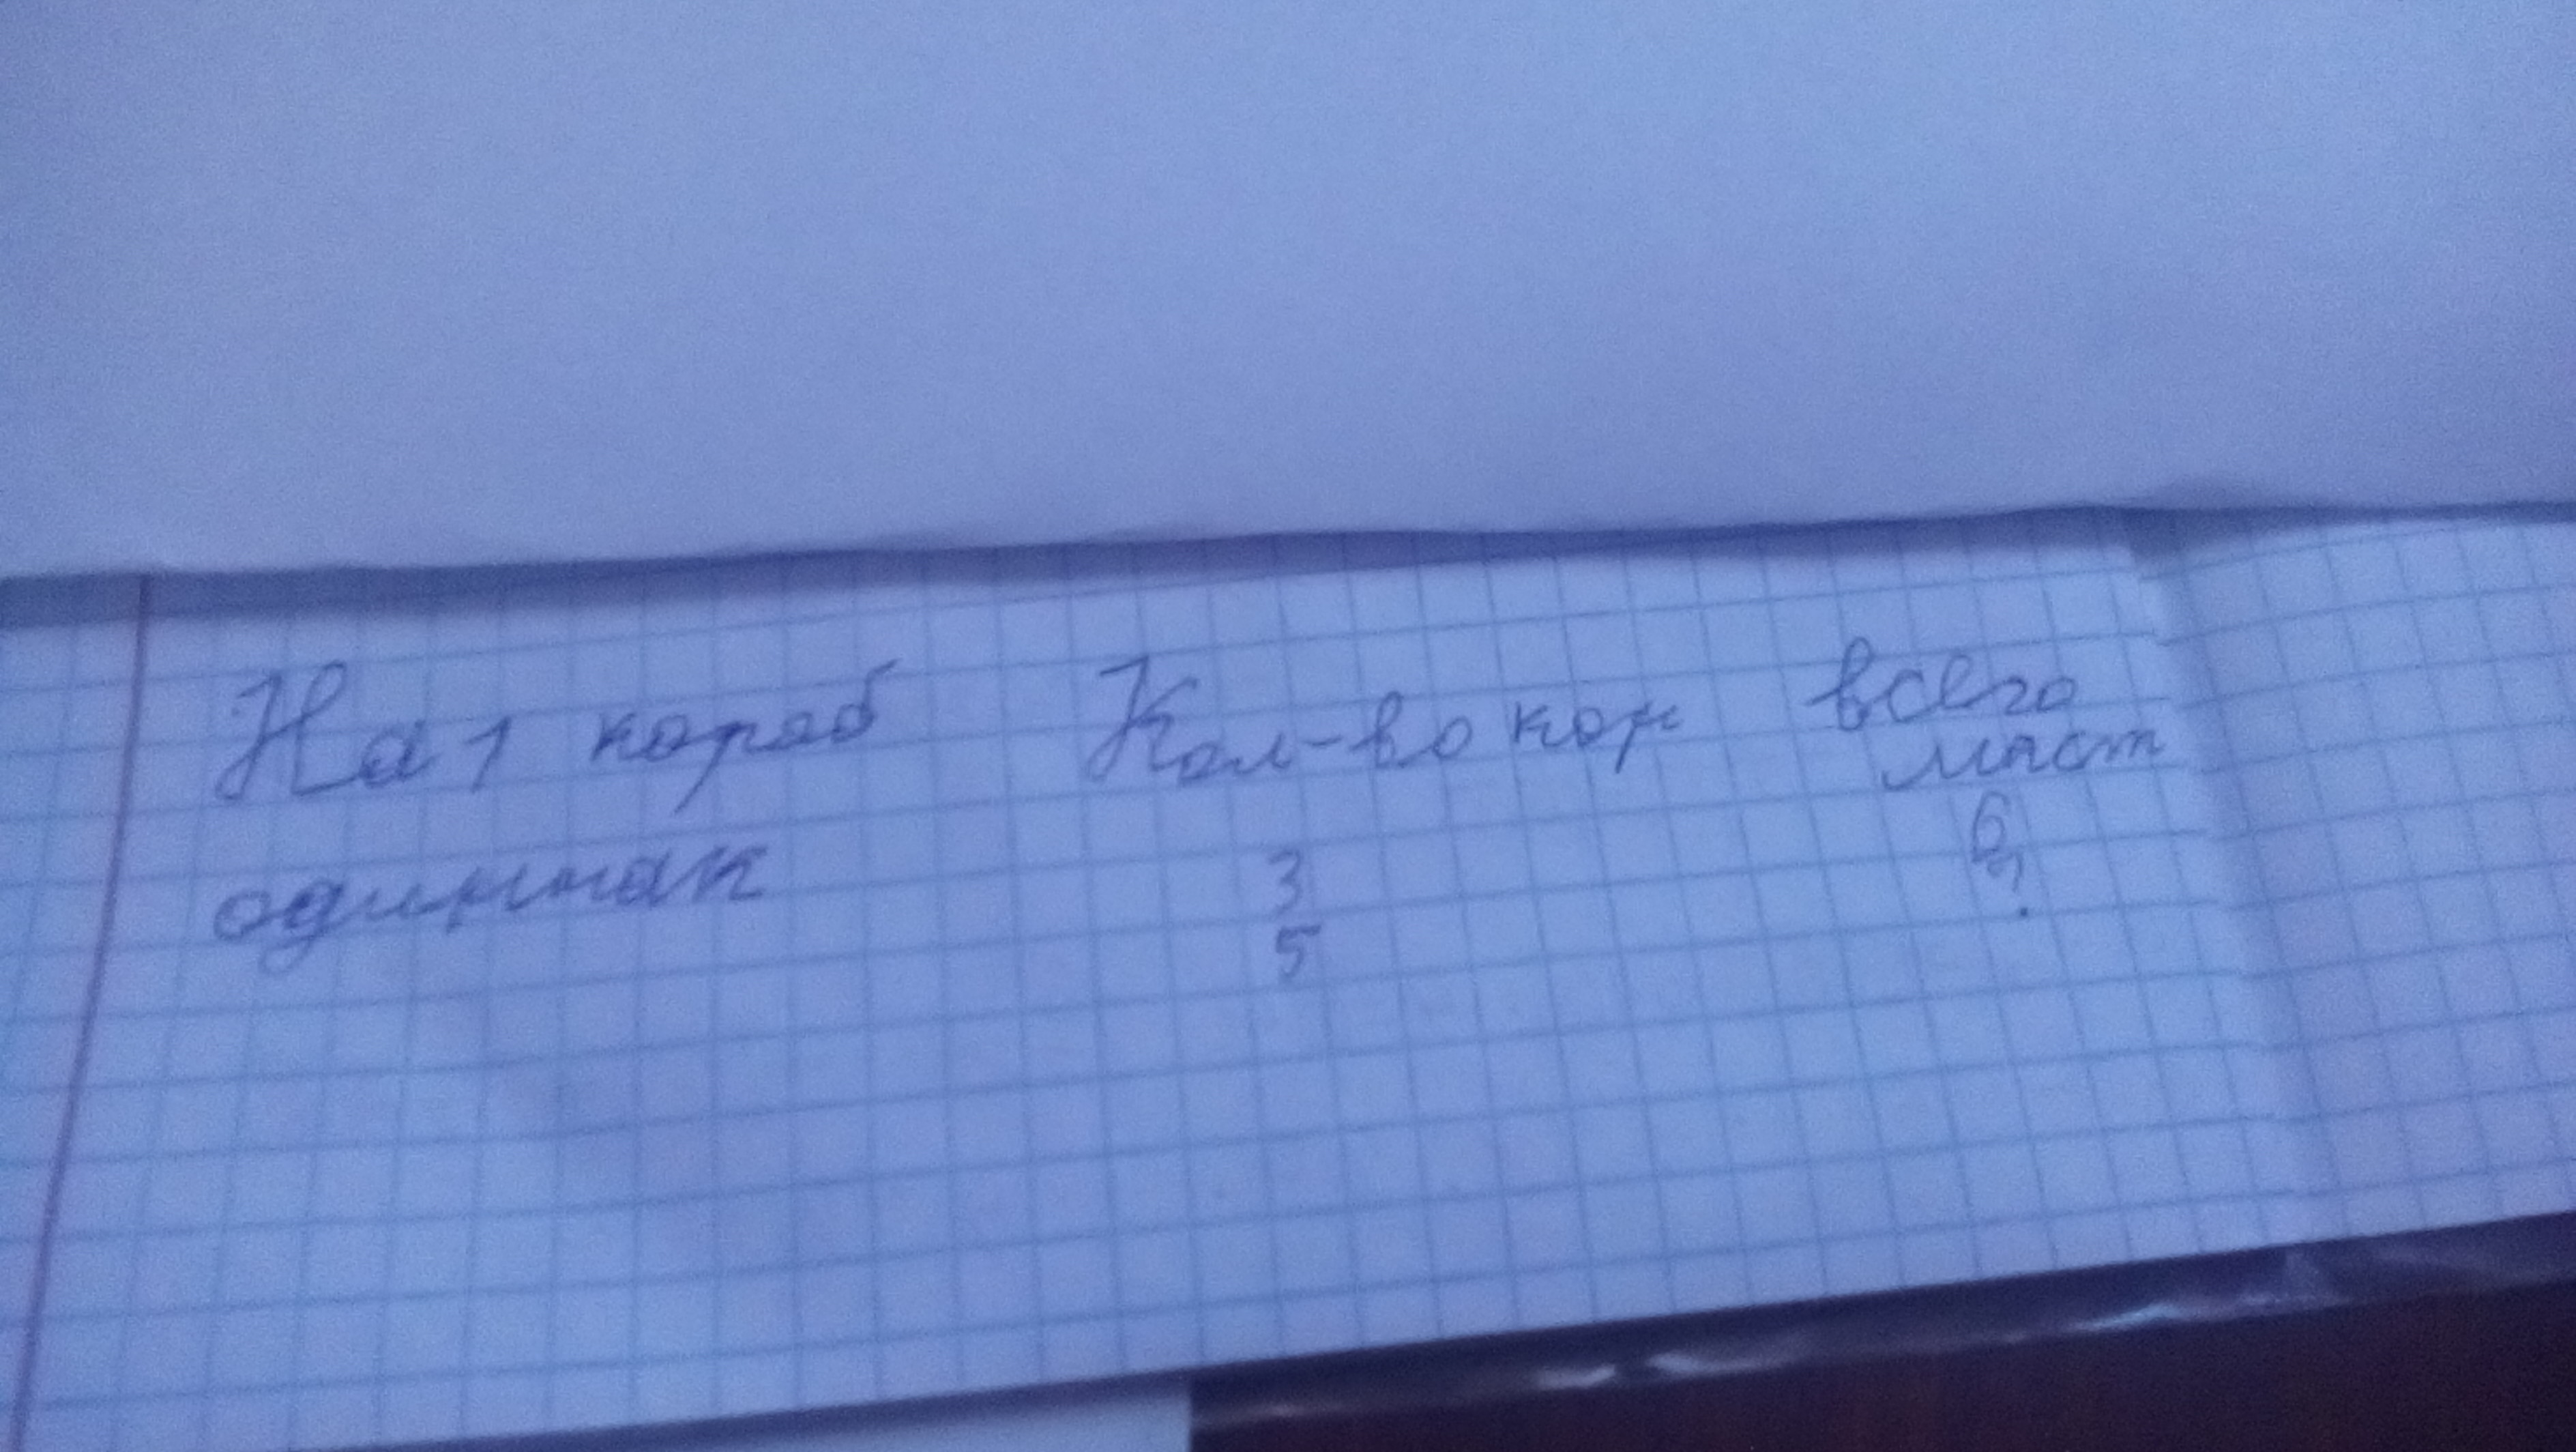 На 1 короб Кол-во кор всего
маст
одинак 3 6
5 ?